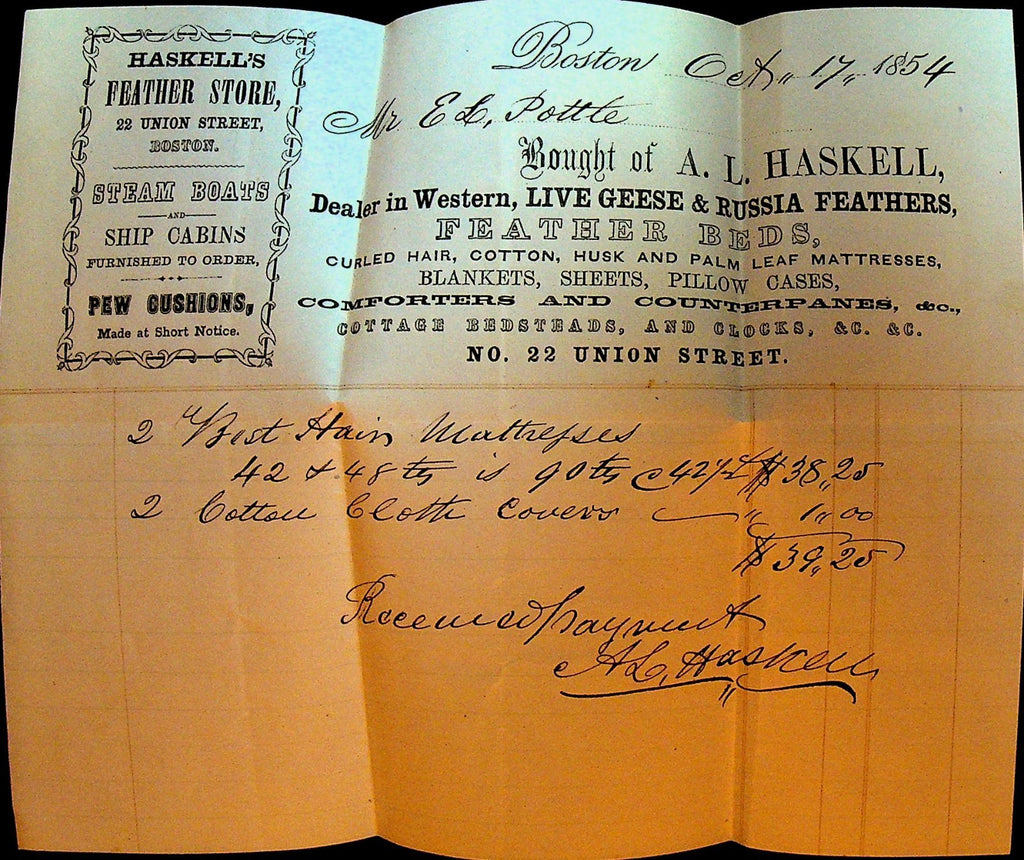 HASKELL'S
FEATHER STORE,
22 UNION STREET,
BOSTON.
STEAM BOATS
AND
SHIP CABINS
FURNISHED TO ORDER,
PEW CUSHIONS,
Made at Short Notice.
Boston Oct,, 17,, 1854
Mr E L, Pottle
Bought of A. L. HASKELL,
Dealer in Western, LIVE GEESE & RUSSIA FEATHERS,
FEATHER BEDS,
CURLED HAIR, COTTON, HUSK AND PALM LEAF MATTRESSES,
BLANKETS, SHEETS, PILLOW CASES,
COMFORTERS AND COUNTERPANES, &c.,
COTTAGE BEDSTEADS, AND CLOCKS, &C. &C.
NO. 22 UNION STREET.
2 Best Hair Mattresses
42 & 48 lbs is 90 lbs @ 42½ $38,,25
2 Cotton Cloth Covers " 1,,00
$39,,25
Received payment
A L, Haskell